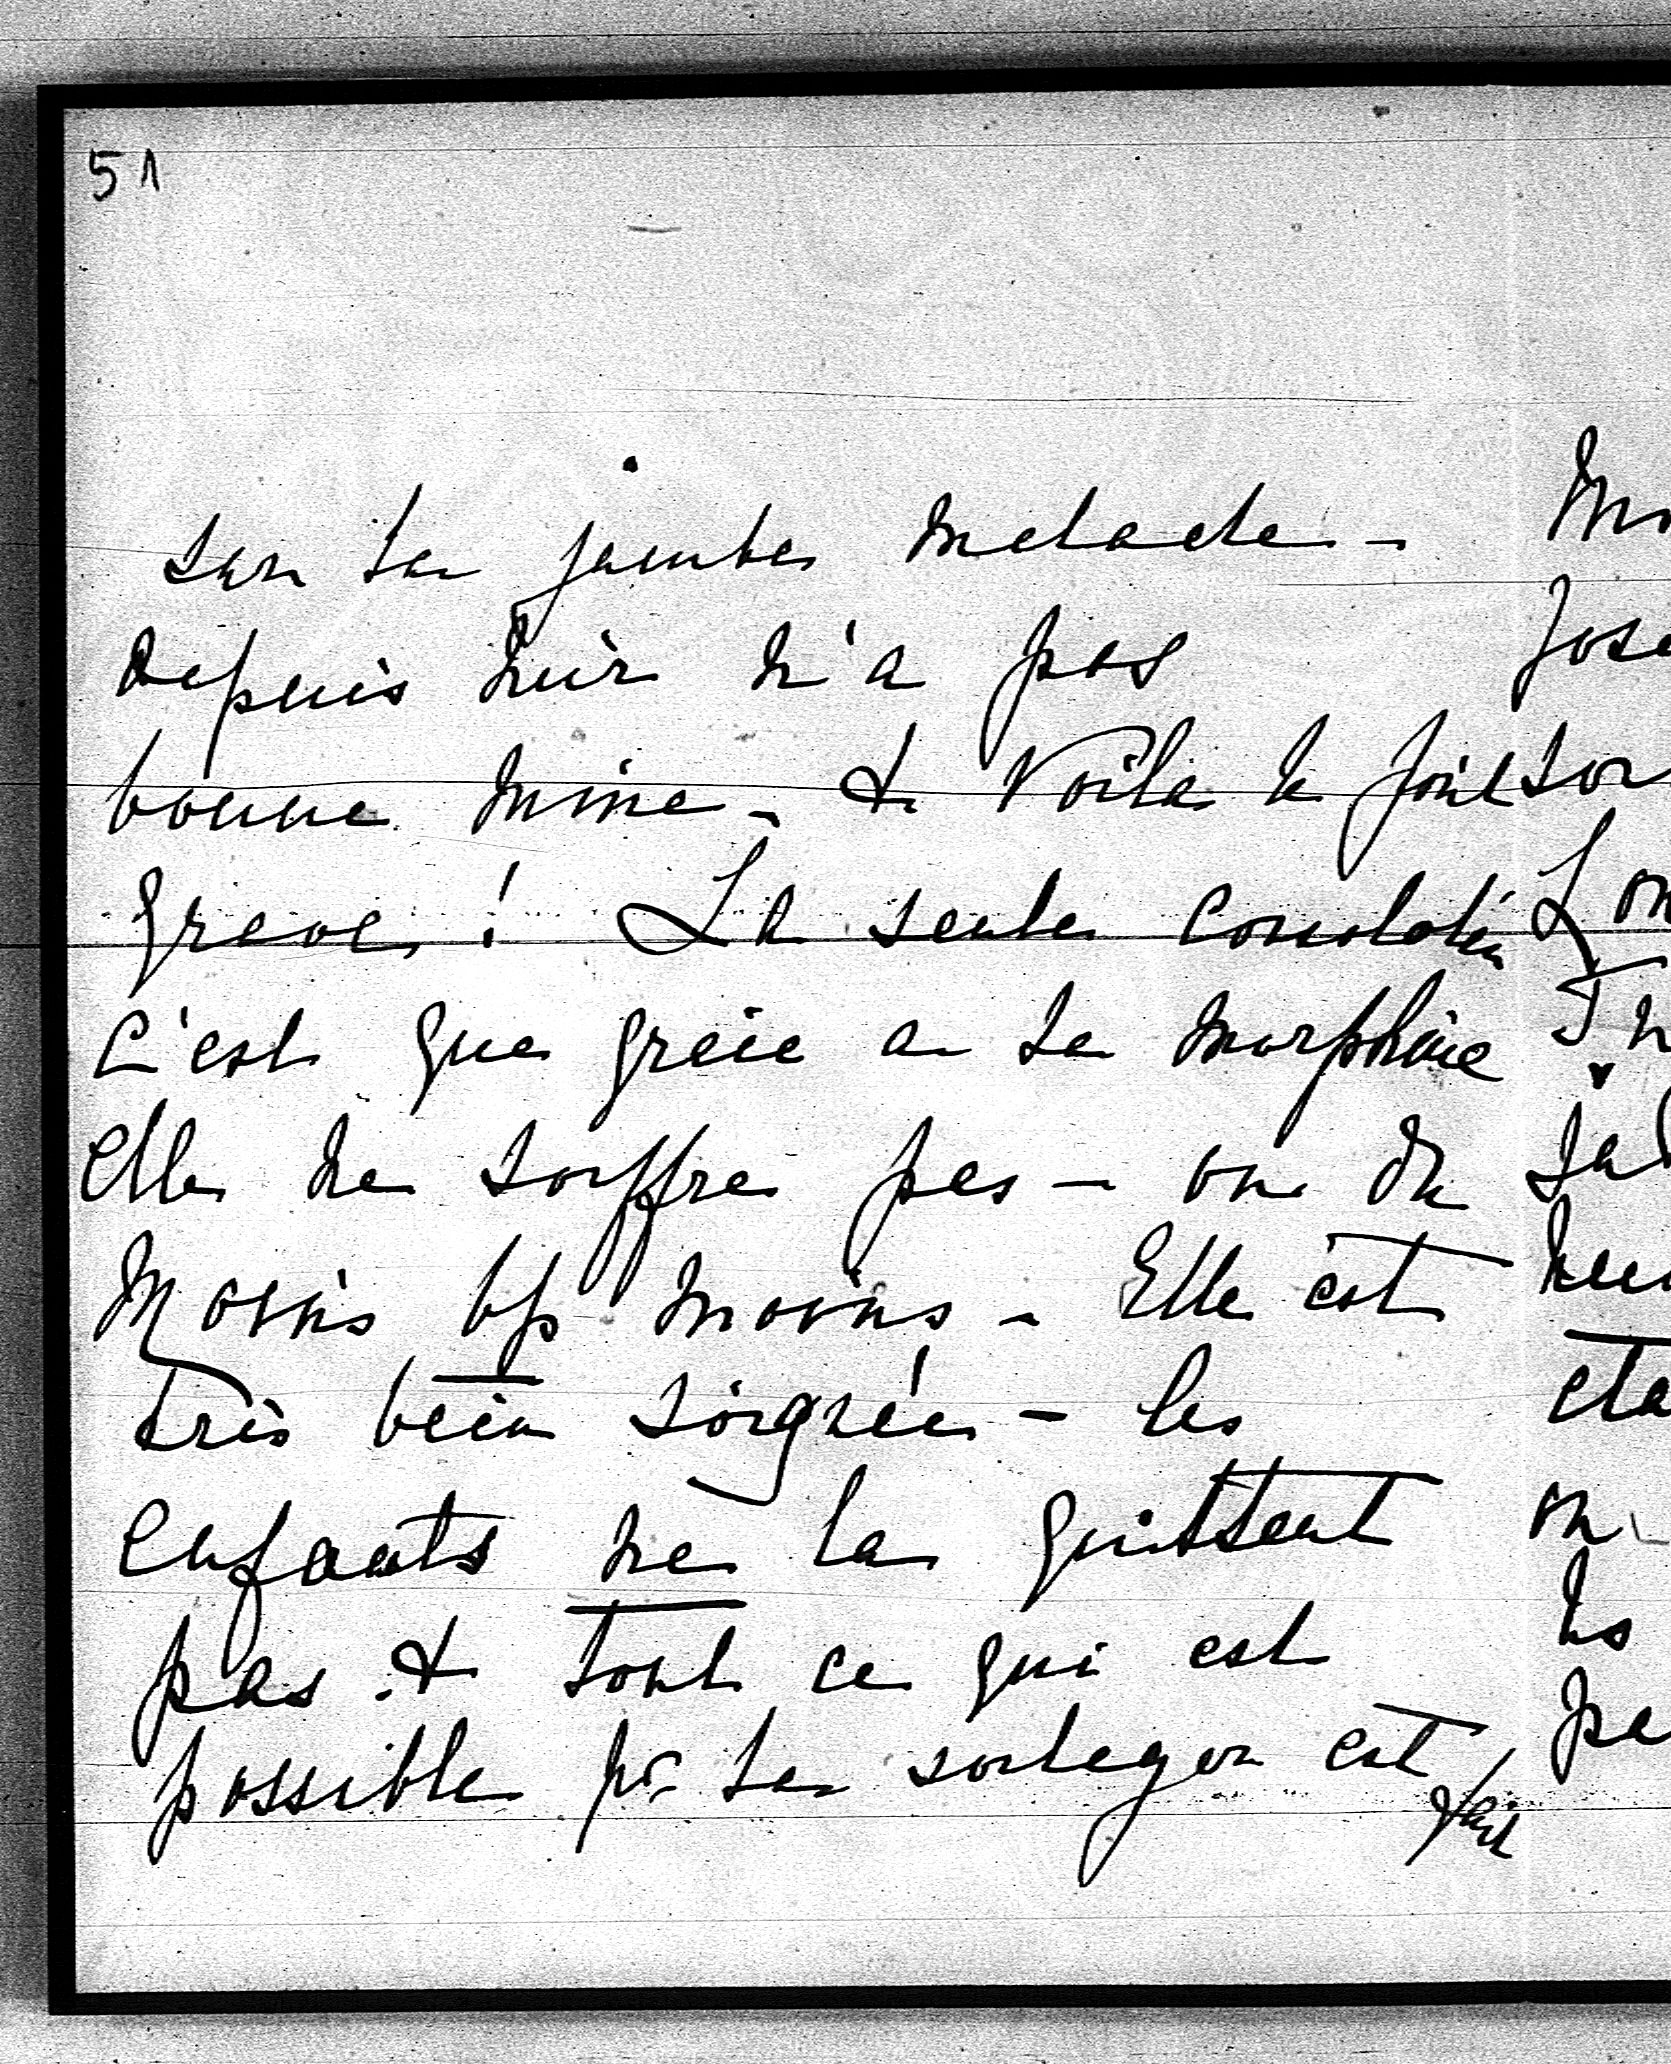 51
sur la jambe malade -
depuis hier n'a pas
bonne mine - & voilà le
grave! La seule consolation
c'est que grace a la morphine
elle ne souffre pas - ou du
moins bp moins - Elle est
très bien soignée - les
enfants ne la quittent
pas & tout ce qui est
possible pr la soulager est
fait